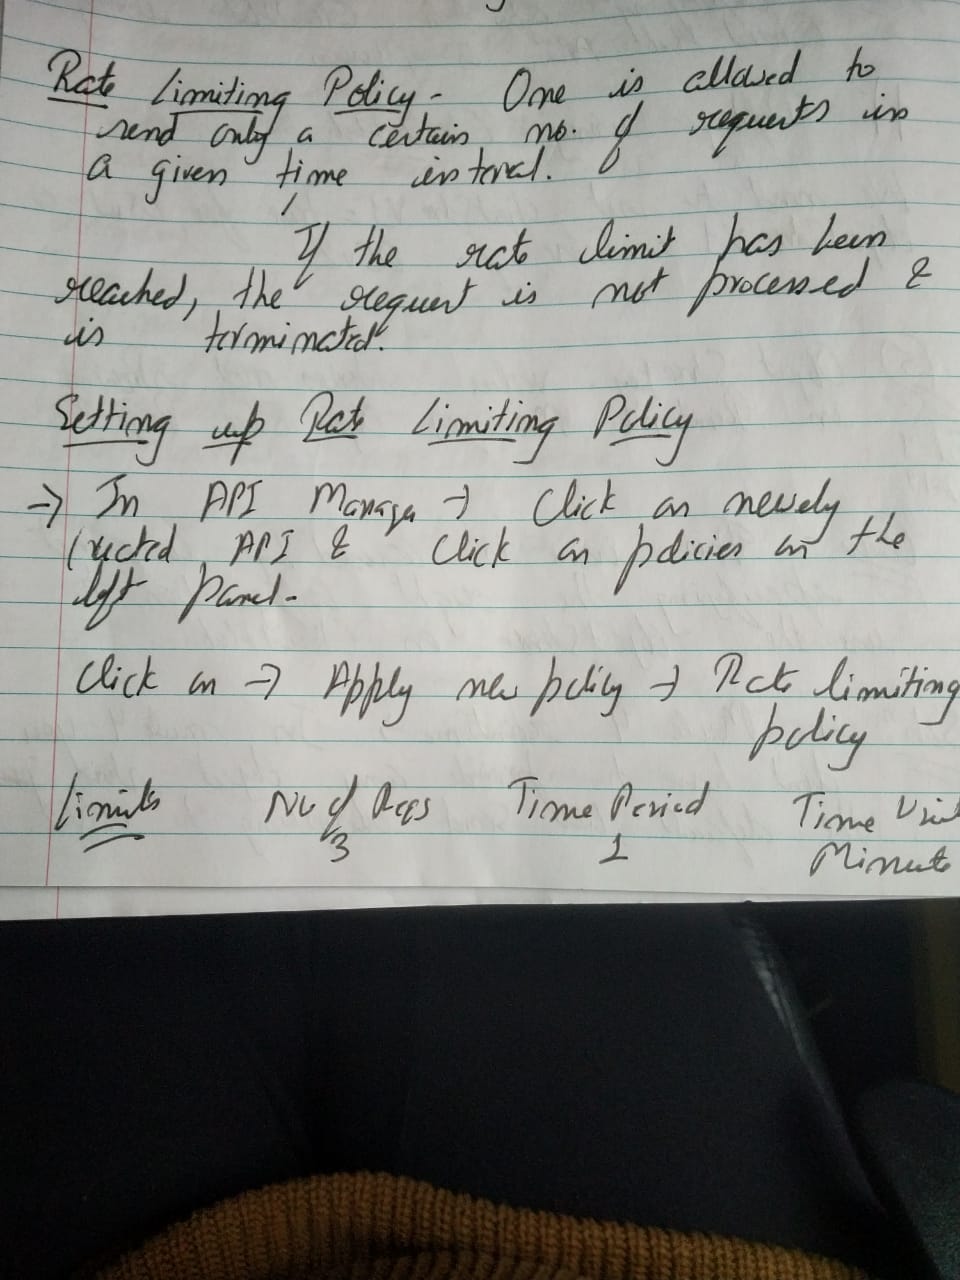 Rate Limiting Policy - One is allowed to
send only a certain no. of requests in
a given time interval.
If the rate limit has been
reached, the request is not processed &
is terminated.
Setting up Rate Limiting Policy
→ In API Manager → Click on newly
created API & click on policies on the
left panel.
Click on → Apply new policy → Rate limiting
policy
Limits No of Reqs Time Period Time Unit
3 1 Minute